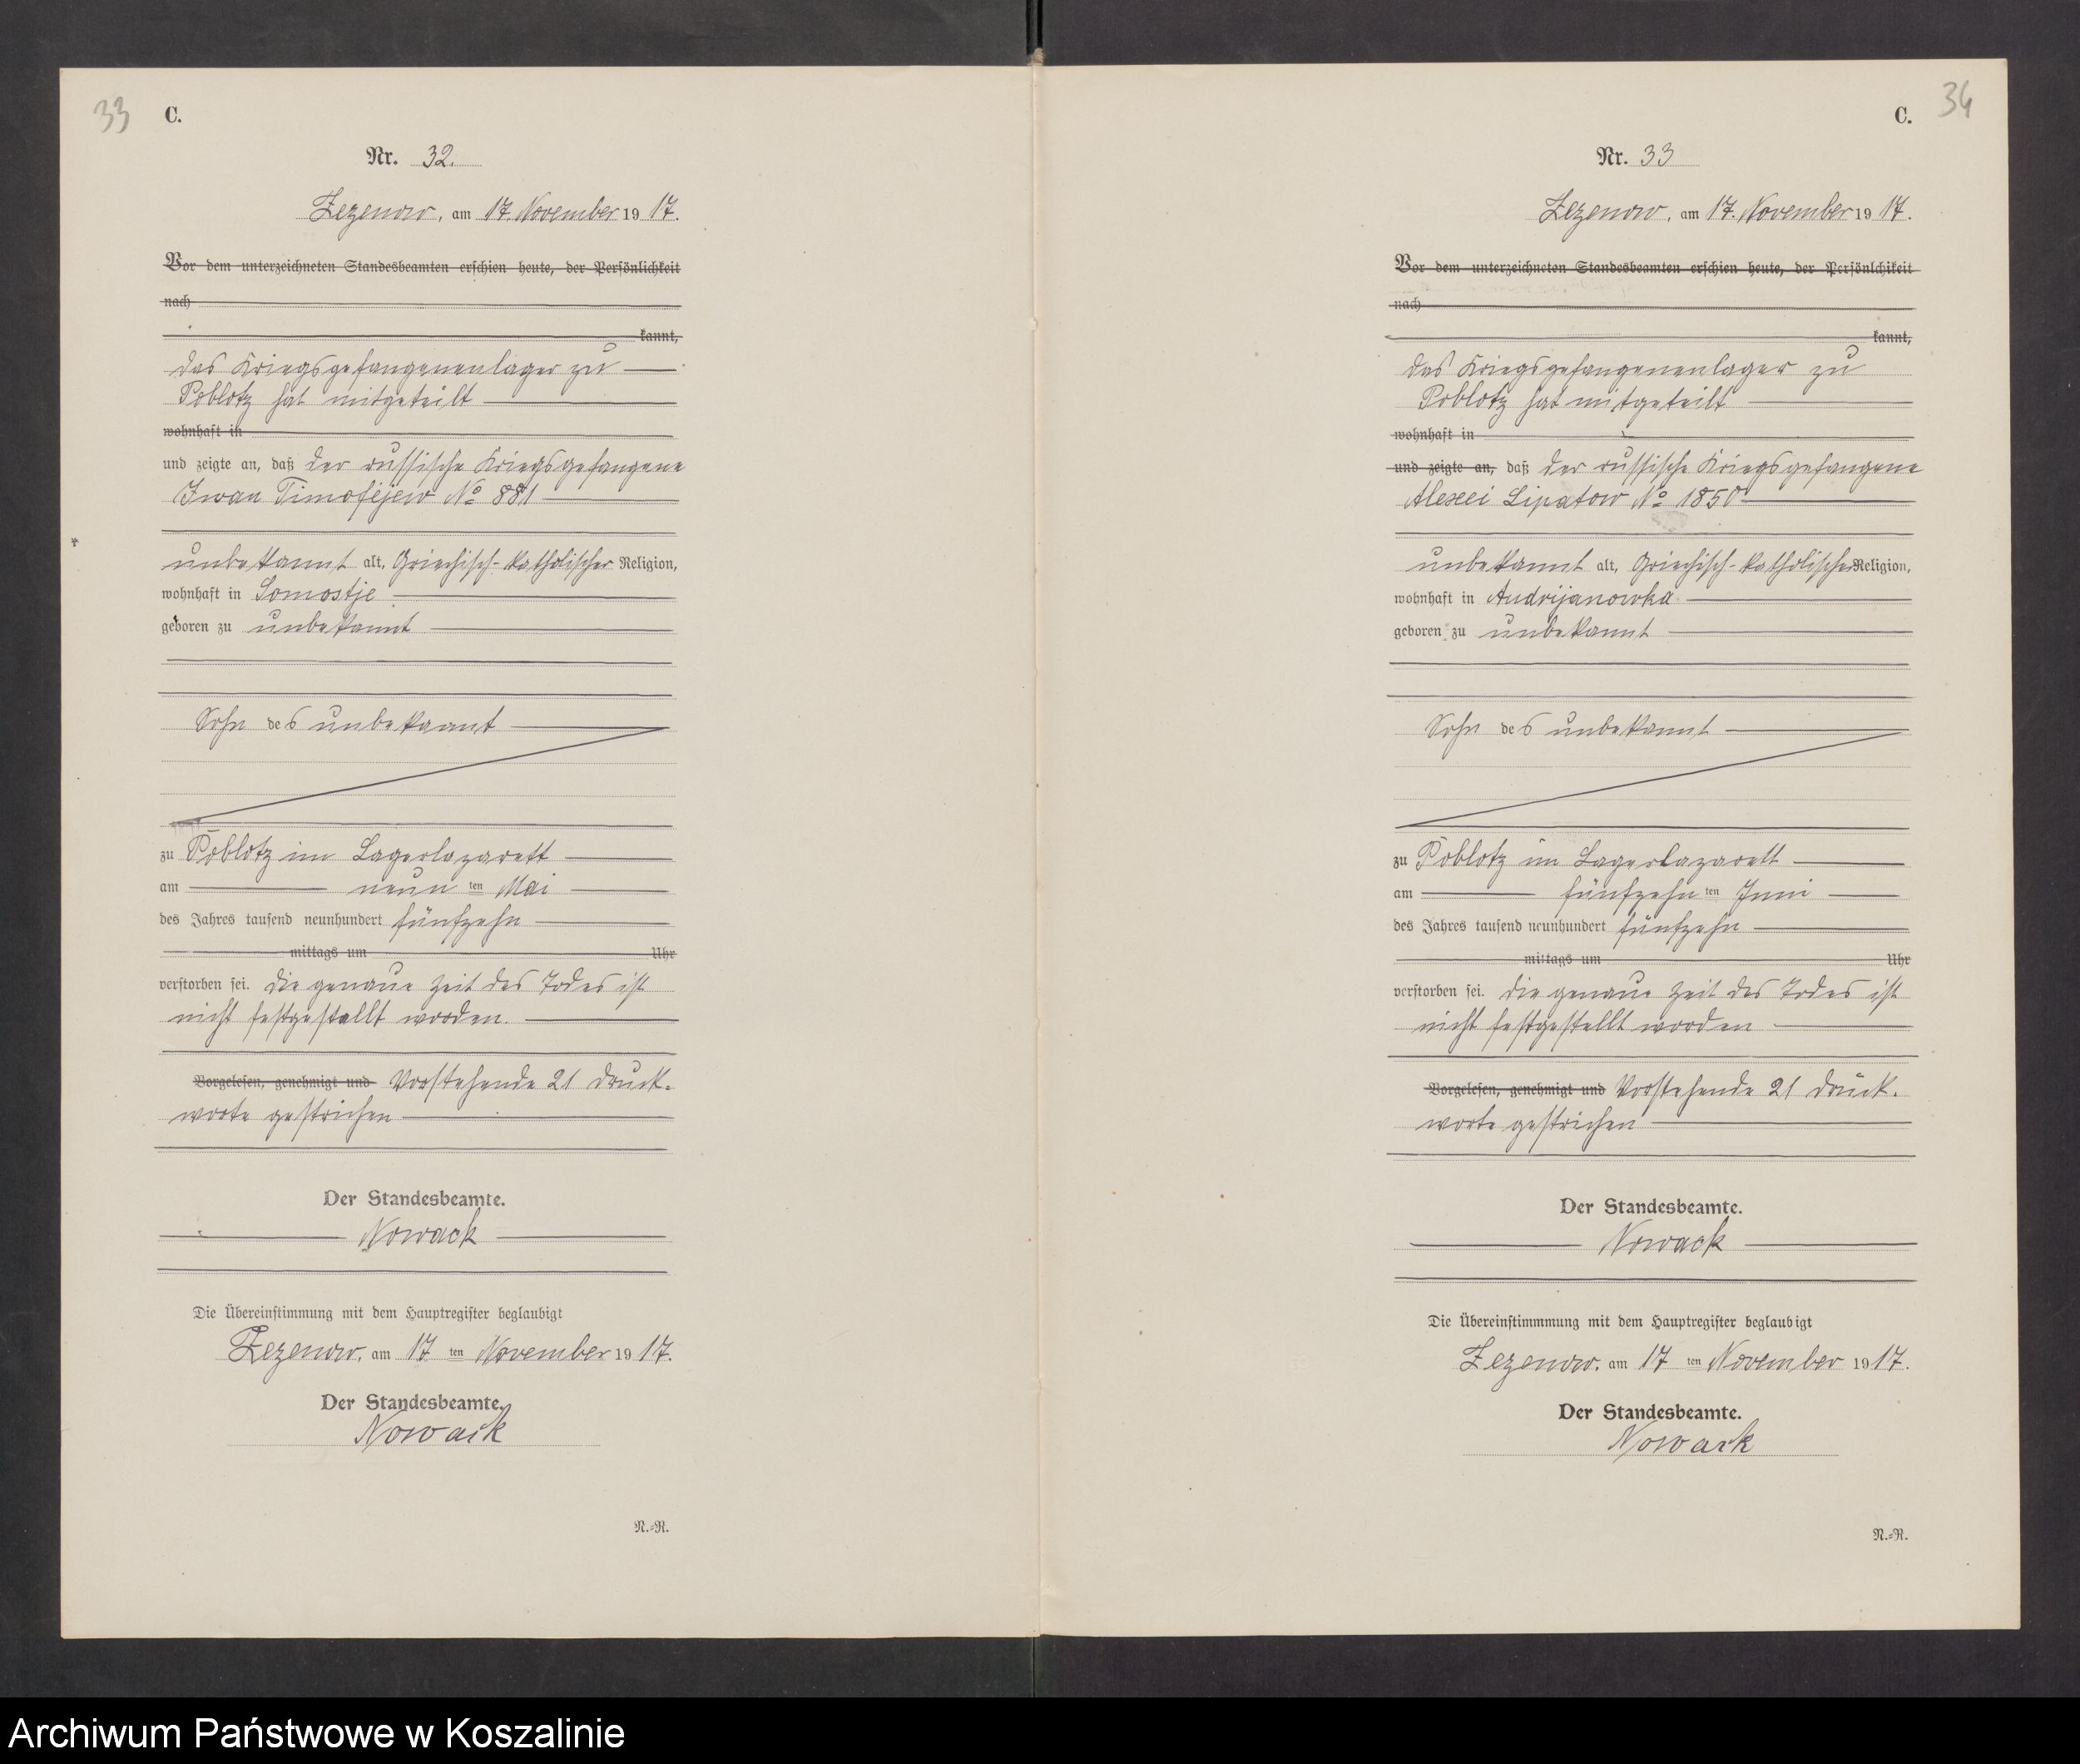 33
C.
Nr. 32.
Zezenow, am 17. November 1917.
Vor dem unterzeichneten Standesbeamten erschien heute, der Persönlichkeit
nach
kannt,
das Kriegsgefangenenlager zu
Poblotz hat mitgeteilt
wohnhaft in
und zeigte an, daß der russische Kriegsgefangene
Iwan Timofejew No 881
unbekannt alt, Griechisch-katholischer Religion,
wohnhaft in Somostje
geboren zu unbekannt
Sohn des unbekannt
zu Poblotz im Lagerlazarett
am neun ten Mai
des Jahres tausend neunhundert fünfzehn
mittags um Uhr
verstorben sei. die genaue Zeit des Todes ist
nicht festgestellt worden.
Vorgelesen, genehmigt und Vorstehende 21 Druck-
worte gestrichen
Der Standesbeamte.
Nowack
Die Übereinstimmung mit dem Hauptregister beglaubigt
Zezenow, am 17 ten November 1917.
Der Standesbeamte.
Nowack
N.-R.
34
C.
Nr. 33
Zezenow, am 17. November 1917.
Vor dem unterzeichneten Standesbeamten erschien heute, der Persönlchikeit
nach
kannt,
das Kriegsgefangenenlager zu
Poblotz hat mitgeteilt
wohnhaft in
und zeigte an, daß der russische Kriegsgefangene
Alexei Lipatow No 1850
unbekannt alt, Griechisch-katholischer Religion,
wohnhaft in Andrijanowka
geboren zu unbekannt
Sohn des unbekannt
zu Poblotz im Lagerlazarett
am fünfzehn ten Juni
des Jahres tausend neunhundert fünfzehn
mittags um Uhr
verstorben sei. die genaue Zeit des Todes ist
nicht festgestellt worden
Vorgelesen, genehmigt und Vorstehende 21 Druck-
worte gestrichen
Der Standesbeamte.
Nowack
Die Übereinstimmmung mit dem Hauptregister beglaubigt
Zezenow. am 17 ten November 1917.
Der Standesbeamte.
Nowack
N.-R.
Archiwum Państwowe w Koszalinie